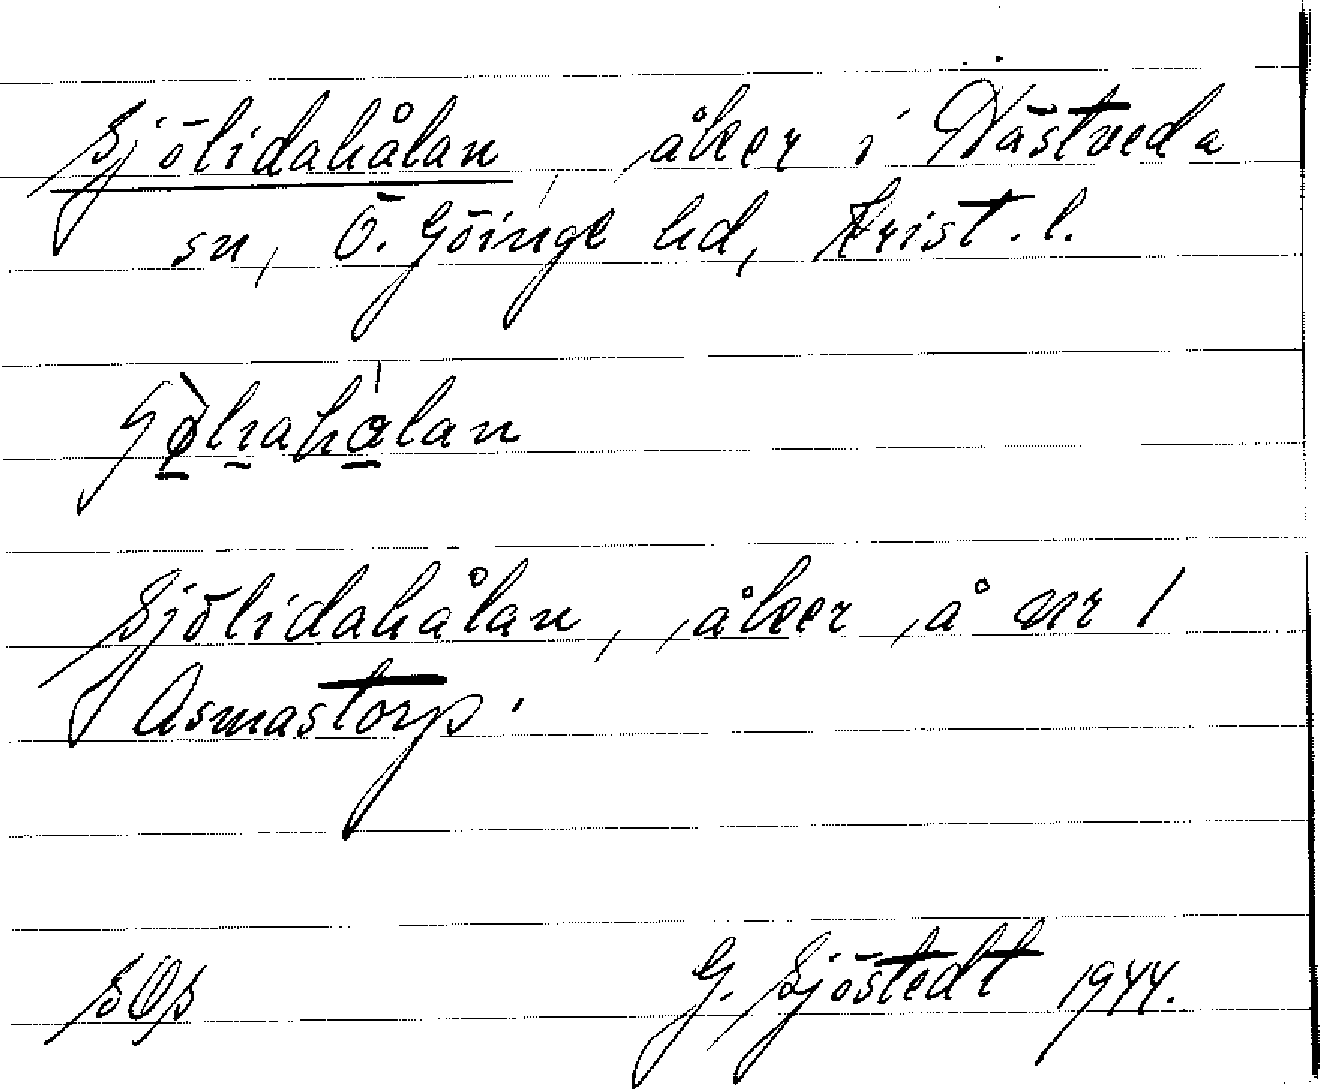 Sjölidahålan, åker i Nästveda
sn, Ö. Göinge hd, Krist. l.
Sjölidahålan, åker å nr 1
Asmastorp.
G. Sjöstedt 1944.